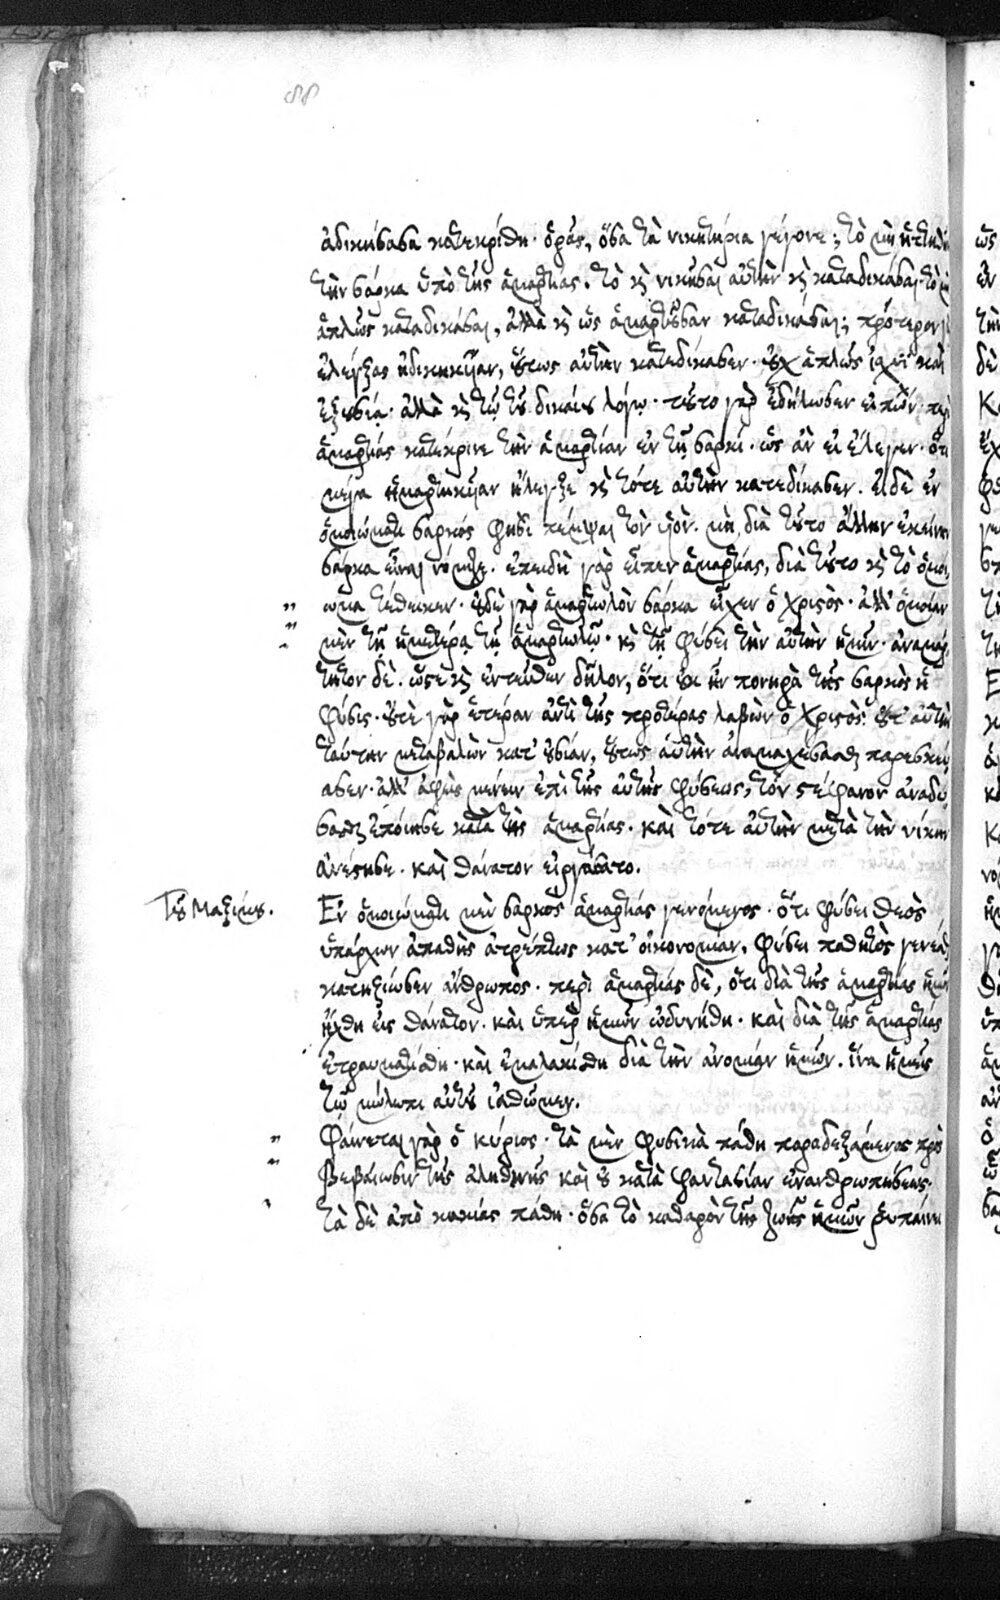 88
ἀδικήσασα κατεκρίθη· ὁρᾷς, ὅσα τὰ νικητήρια γέγονε; τὸ μὴ ἡττηθῆναι
τὴν σάρκα ὑπὸ τῆς ἁμαρτίας. τὸ καὶ νικῆσαι αὐτὴν καὶ καταδικάσαι· τὸ μὴ
ἁπλῶς καταδικάσαι, ἀλλὰ καὶ ὡς ἁμαρτοῦσαν καταδικάσαι; πρότερον
ἐλέγξας ἠδικηκυῖαν, οὕτως αὐτὴν κατεδίκασεν· οὐχ ἁπλῶς ἰσχύϊ καὶ
ἐξουσίᾳ· ἀλλὰ καὶ τῷ τοῦ δικαίου λόγῳ· τοῦτο γὰρ ἐδήλωσεν εἰπὼν· περὶ
ἁμαρτίας κατέκρινε τὴν ἁμαρτίαν ἐν τῇ σαρκί· ὡς ἂν εἰ ἔλεγεν· ὅτι
μέγα ἡμαρτηκυῖαν ἤλεγξε καὶ τότε αὐτὴν κατεδίκασεν. εἰ δὲ ἐν
ὁμοιώματι σαρκός φησὶ πέμψαι τὸν υἱὸν· μὴ διὰ τοῦτο ἄλλην ἐκείνην
σάρκα εἶναι νόμιζε· ἐπειδὴ γὰρ εἶπεν ἁμαρτίας, διὰ τοῦτο καὶ τὸ ὁμοί
ωμα τέθεικεν· οὐδὲ γὰρ ἁμαρτωλὸν σάρκα εἶχεν ὁ Χριστὸς· ἀλλ' ὁμοίαν
μὲν τῇ ἡμετέρᾳ τῇ ἁμαρτωλῷ· καὶ τῇ φύσει τὴν αὐτὴν ἡμῖν· ἀναμάρ
τητον δὲ. ὥστε καὶ ἐντεῦθεν δῆλον, ὅτι οὐκ ἦν πονηρὰ τῆς σαρκὸς ἡ
φύσις· οὔτε γὰρ ἑτέραν ἀντὶ τῆς προτέρας λαβὼν ὁ Χριστὸς· οὔτ' αὐτὴν
ταύτην μεταβαλὼν κατ' οὐσίαν, οὕτως αὐτὴν ἀναμαχέσασθαι παρεσκεύ
ασεν· ἀλλ' ἀφεὶς μένειν ἐπὶ τῆς αὐτῆς φύσεως, τὸν στέφανον ἀναδή
σασθαι ἐποίησε κατὰ τῆς ἁμαρτίας· καὶ τότε αὐτὴν μετὰ τὴν νίκην
ἀνέστησε· καὶ θάνατον εἰργάσατο.
Τοῦ Μαξίμου. Ἐν ὁμοιώματι μὲν σαρκὸς ἁμαρτίας γενόμενος· ὅτι φύσει θεὸς
ὑπάρχων ἀπαθὴς ἀτρέπτως κατ' οἰκονομίαν, φύσει παθητὸς γενέσθαι
κατηξίωσεν ἄνθρωπος· περὶ ἁμαρτίας δὲ, ὅτι διὰ τῆς ἁμαρτίας ἡμῶν
ἤχθη εἰς θάνατον· καὶ ὑπὲρ ἡμῶν ὠδυνήθη· καὶ διὰ τῆς ἁμαρτίας
ἐτραυματίσθη· καὶ ἐμαλακίσθη διὰ τὴν ἀνομίαν ἡμῶν. ἵνα ἡμεῖς
τῷ μώλωπι αὐτοῦ ἰαθῶμεν.
Φαίνεται γὰρ ὁ κύριος· τὰ μὲν φυσικὰ πάθη παραδεξάμενος πρὸς
βεβαίωσιν τῆς ἀληθινῆς καὶ οὐ κατὰ φαντασίαν ἐνανθρωπήσεως·
τὰ δὲ ἀπὸ κακίας πάθη· ὅσα τὸ καθαρὸν τῆς ζωῆς ἡμῶν ῥυπαίνει